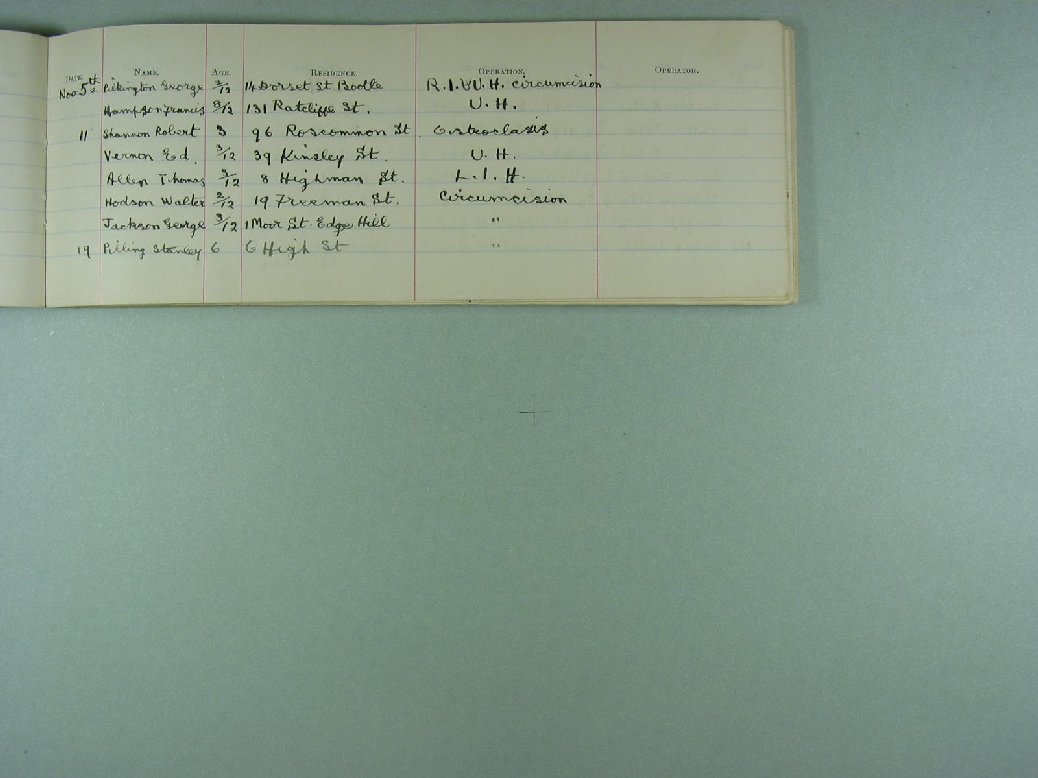 DATE. NAME. AGE. RESIDENCE. OPERATION. OPERATOR.
Nov 5th Pilkington George 3/12 14 Dorset St Bootle R.I. U.H. circumcision
Hampson Francis 3/12 131 Ratcliffe St. U.H.
11 Shannon Robert 3 96 Roscommon St. Osteoclasis
Vernon Ed. 3/12 39 Kinsley St. U.H.
Allen Thomas 3/12 8 Highman St. L.I.H.
Hodson Walter 2/12 19 Freeman St. Circumcision
Jackson George 3/12 1 Moor St. Edge Hill "
19 Pilling Stanley 6 6 High St "